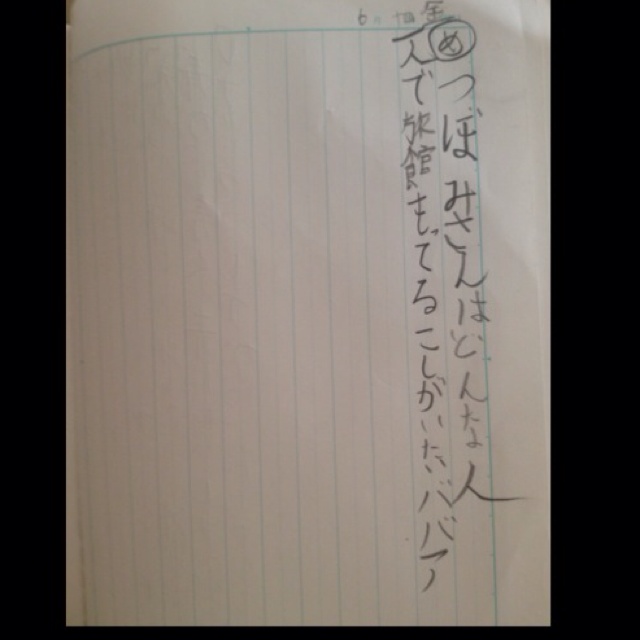 めつぼみさんはどんな人
一人で旅館もてるこしがいたいババア